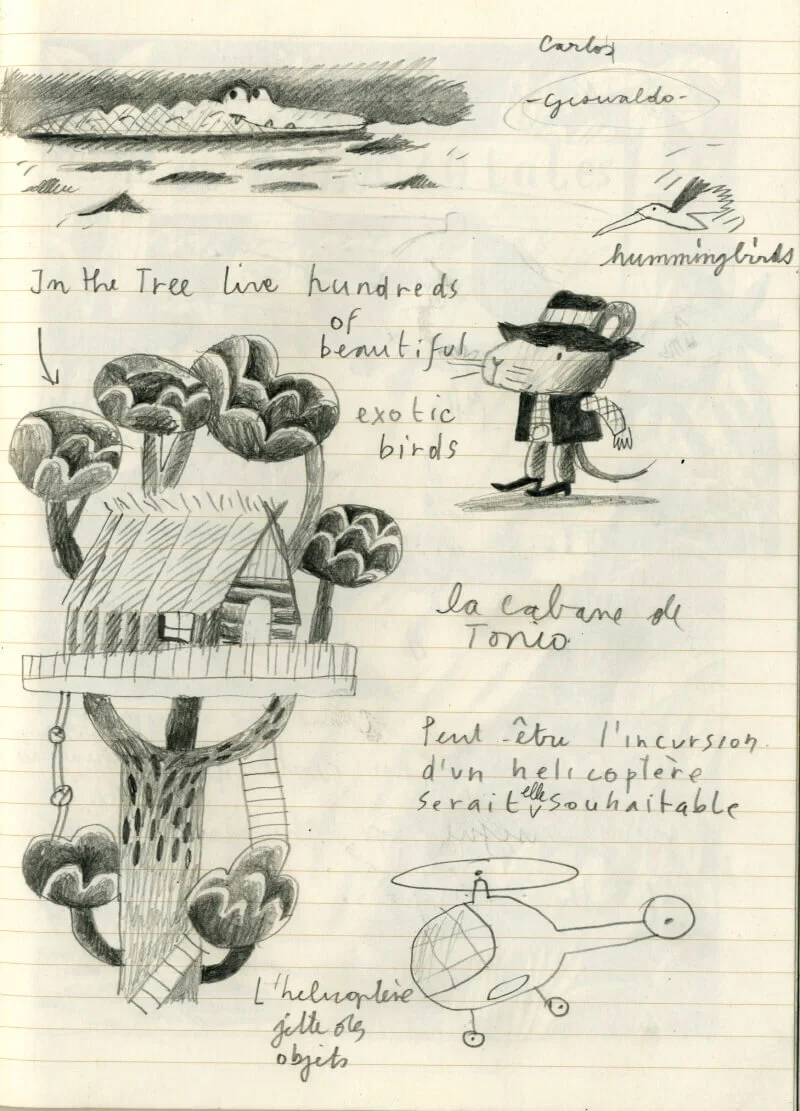 Carlos
-Gesualdo-
hummingbirds
In the Tree live hundreds
of
beautiful
exotic
birds
la cabane de
Tonio
Peut-être l'incursion
d'un helicoptère
serait elle souhaitable
L'helicoptère
jette des
objets